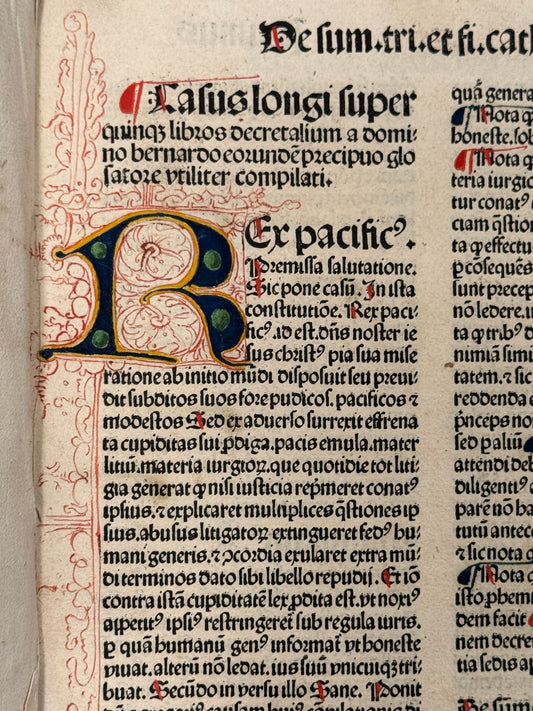 De sum.tri.et fi.cath
Casus longi super
quinqȝ libros decretalium a domi⸗
no bernardo eorundē precipuo glo
satore vtiliter compilati.
REx pacificꝰ.
Premissa salutatione.
Sic pone casū. In ista
constitutiōe. Rex paci⸗
ficꝰ.id est.dn̄s noster ie
sus christꝰ pia sua mise
ratione ab initio mūdi disposuit seu preui⸗
dit subditos suos fore pudicos. pacificos ⁊
modestos Sed ex aduerso surrexit effrena
ta cupiditas sui ꝓdiga.pacis emula.mater
litiū.materia iurgioꝝ.que quotidie tot liti⸗
gia generat ꝙ nisi iusticia rep̄meret conatꝰ
ipsius.⁊ explicaret multiplices q̄stiones ip⸗
sius.abusus litigatoꝝ extingueret fedꝰ hu⸗
mani generis.⁊ ꝯcordia exularet extra mū⸗
di terminos dato sibi libello repudij. Et iō
contra istā cupiditatē lex ꝓdita est.vt noxiꝰ
appetitꝰ ipsiꝰ restringeret̄ sub regula iuris.
ꝑ quā humanū genꝰ informat̄ vt honeste
viuat.alterū non ledat.ius suū vnicuiqȝ tri⸗
buat. Secūdo in versu illo Sane. Ponit
quā genera
Nota ꝙ
honeste.sob
Nota ꝙ
teria iurgio
tur conatꝰ
ciam q̄stion
ta ꝙ effectu
ꝑ cōsequēs
sunt precep
nō ledere.
ta ꝙ tribꝰ d
nimiā simi
tatē.⁊ sic
reddenda
ṗnceps non
sed p aliū
attendi deb
diligenti
parē nō ha
tutū antece
⁊ sic nota ꝙ
Nota ꝙ
isto ꝓhem
dem facit
nem decre
tia sedis ap